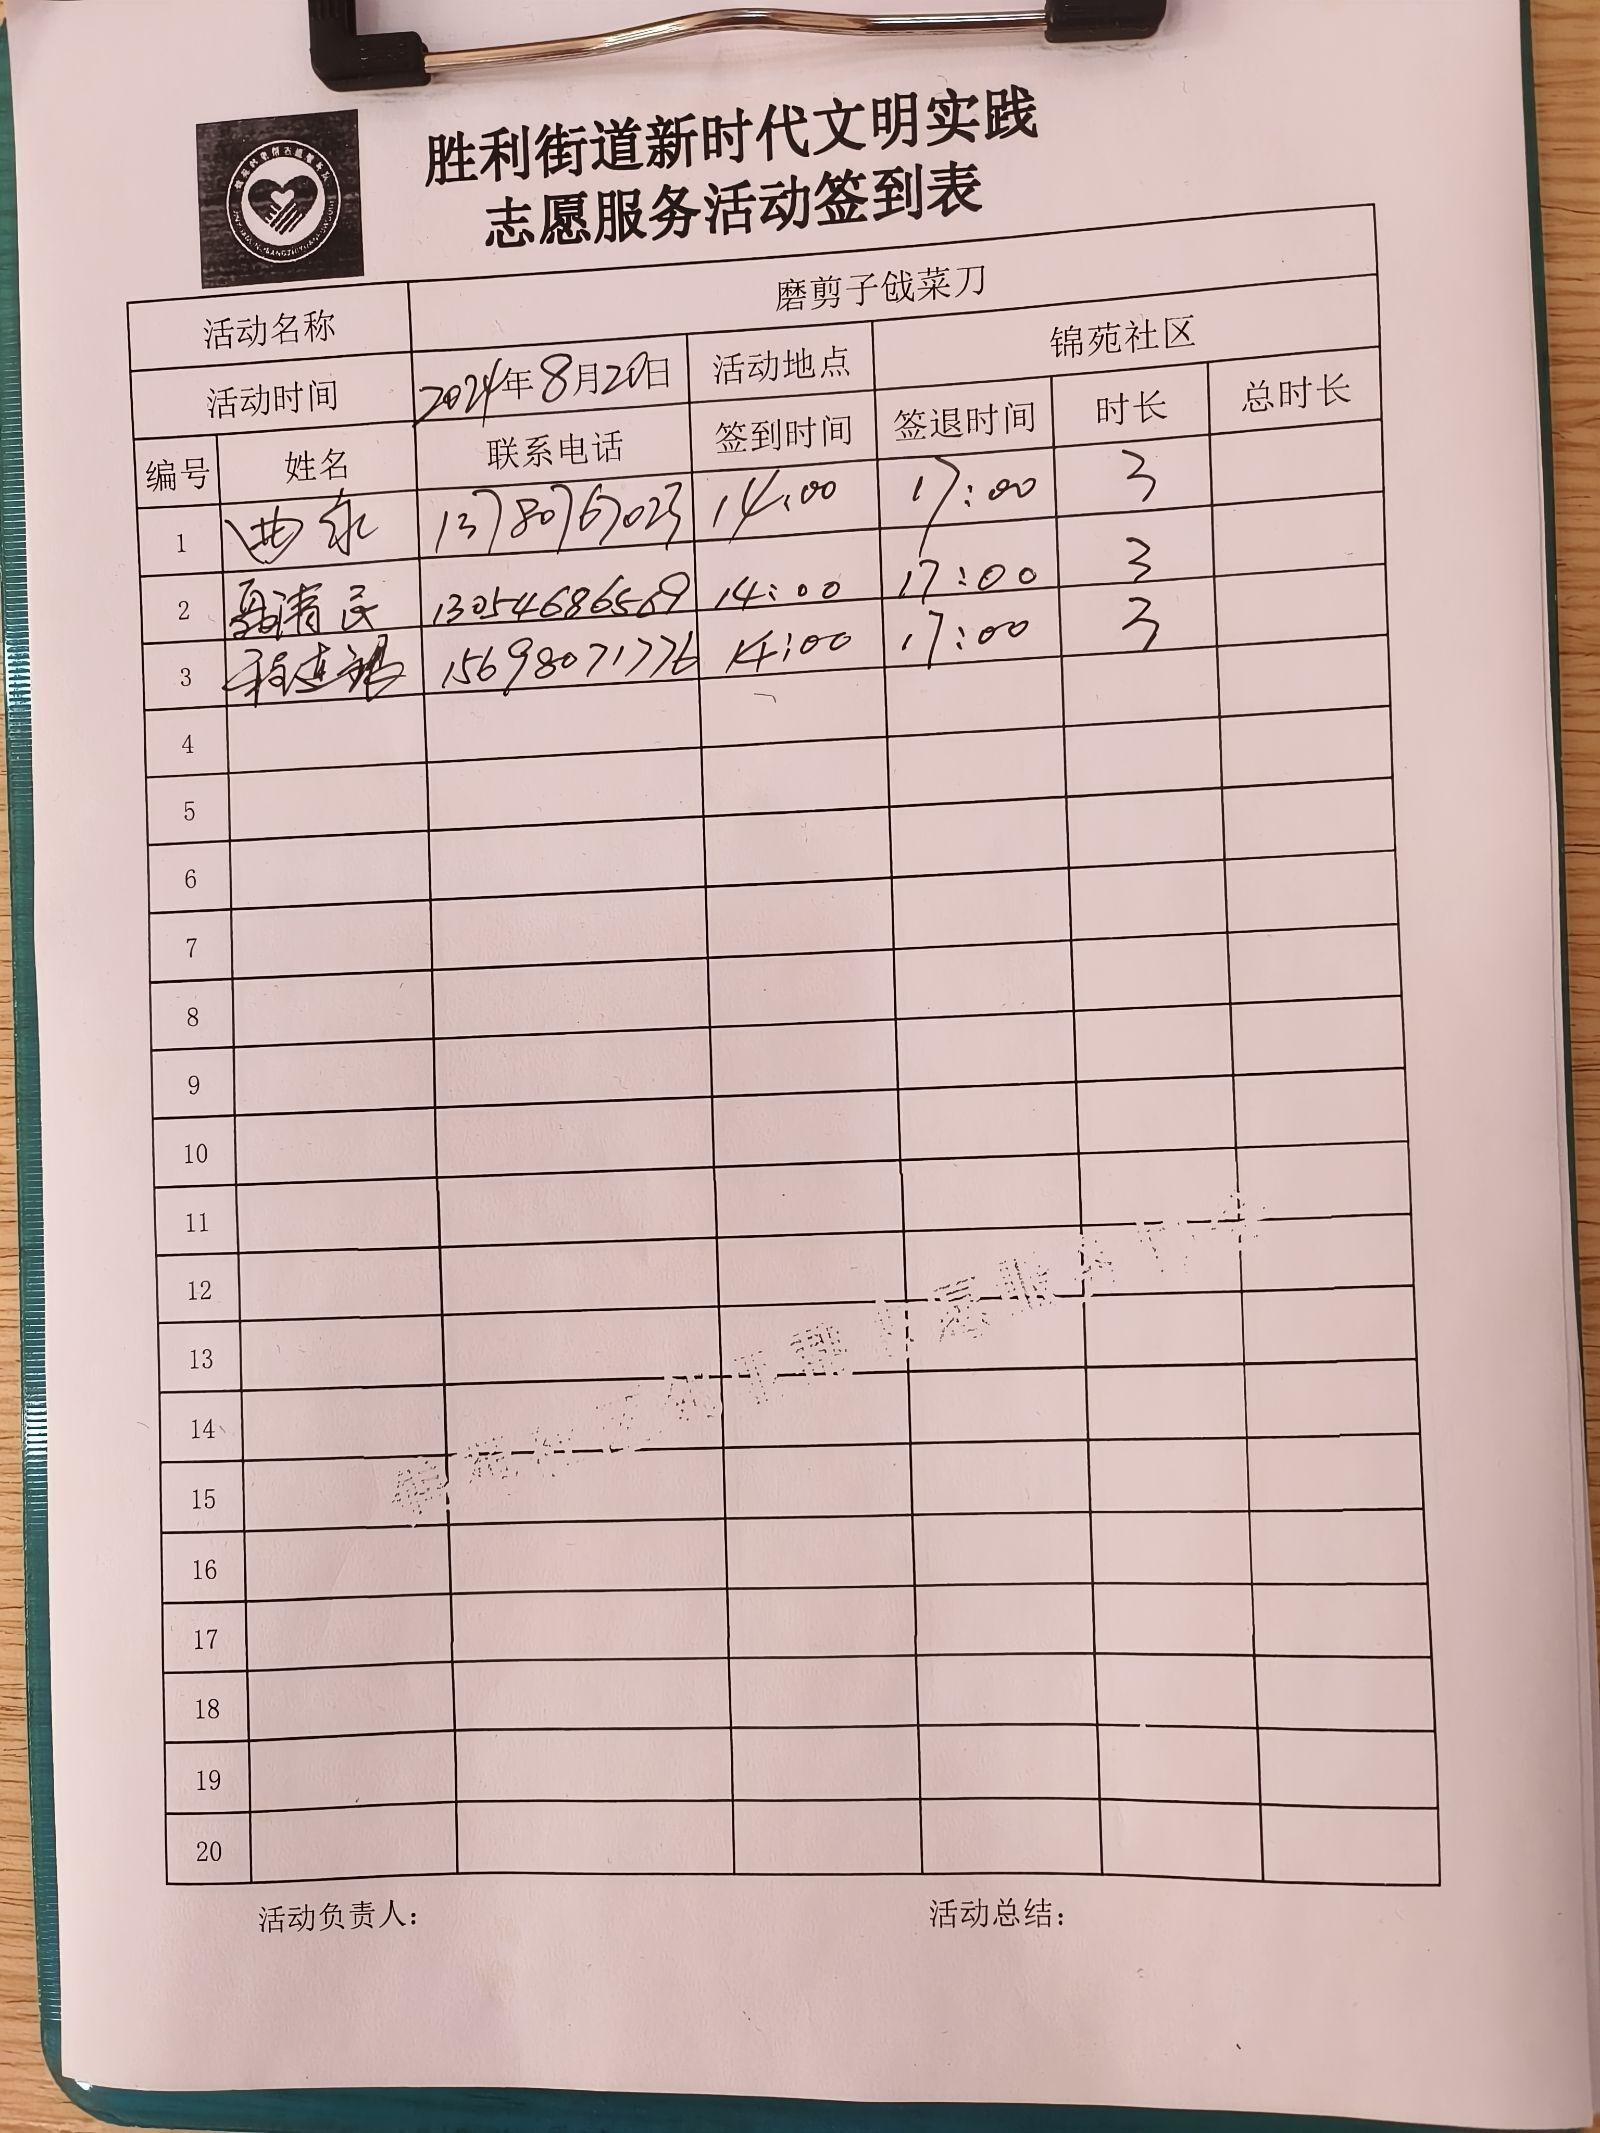 胜利街道新时代文明实践
志愿服务活动签到表
活动名称 磨剪子戗菜刀
活动时间 2024年8月20日 活动地点 锦苑社区
编号 姓名 联系电话 签到时间 签退时间 时长 总时长
1 曲永 13780767023 14:00 17:00 3
2 聂清民 13054686569 14:00 17:00 3
3 程连锡 15698071776 14:00 17:00 3
4
5
6
7
8
9
10
11
12
13
14
15
16
17
18
19
20
活动负责人： 活动总结：